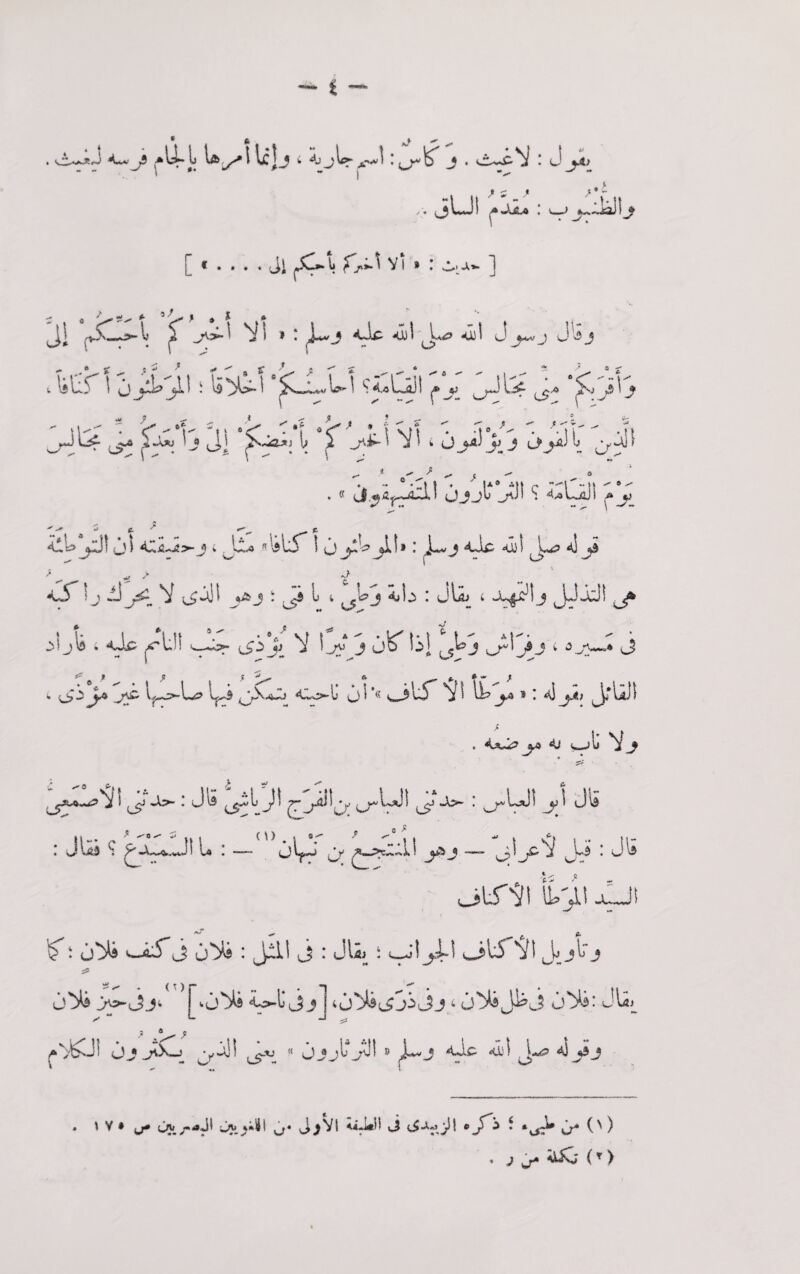 — ٤ —
يقول : لأغيث . وكركى : اسم جارية ، وإنما أمرها بالخلق ، قوسه ليغيث .
والظنبوب : مقدم الساق .
[ حديث : « ألا أخبركم بأحبكم إلى . . . . » ]
وقال رسول الله صلى الله عليه وسلم : « ألا أخبركم بأحبكم إلى
وأقربكم منى مجالس يوم القيامة ؟ أحاسنكم أخلاقا ؛ الموطئون أكنافا ،
الذين يألفون ويؤلفون ، ألا أخبركم بأبغضكم إلى وأبعدكم منى مجالس
يوم القيامة ؟ الثرثارون المتفيهقون » .
قوله صلى الله عليه وسلم : « الموطئون أكنافا » مثل ، وحقيقته أن التوطئة
هى التذليل والتمهيد ، يقال : دابة وطىء ، يا فتى ؛ وهو الذى لا يحرك راكبه
فى مسيره ، وفراش وطىء إذا كان وثيرا لا يؤذى جنب النائم عليه ، فأراد
القائل بقوله : « موطأ الأكناف » أن ناحيته يتمكن فيها صاحبها غير مؤذى ،
ولا ناب به موضعه .
قال أبو العباس : حدثنى العباس بن الفرج الرياشى قال : حدثنى الأصمعى
قال : قيل لأعرابى — وهو المنتجع بن نبهان(١) — : ما السميدع ؟ فقال :
السيد الموطأ الأكناف
وتأويل الأكناف الجوانب ؛ يقال : فى المثل : فلان فى كنف فلان ؛ كما
يقال : فلان فى ظل فلان ، وفى ذرى فلان ، [ وفى ناحية فلان ](٢) ، وفى حيز فلان
وقوله صلى الله عليه وسلم « الثرثارون » يعنى الذين يكثرون الكلام
(١) من طىء ؛ ذكره الزبيدى فى الطبقة الأولى من اللغويين البصريين ص ١٧٥ .
(٢) تكملة من ر .